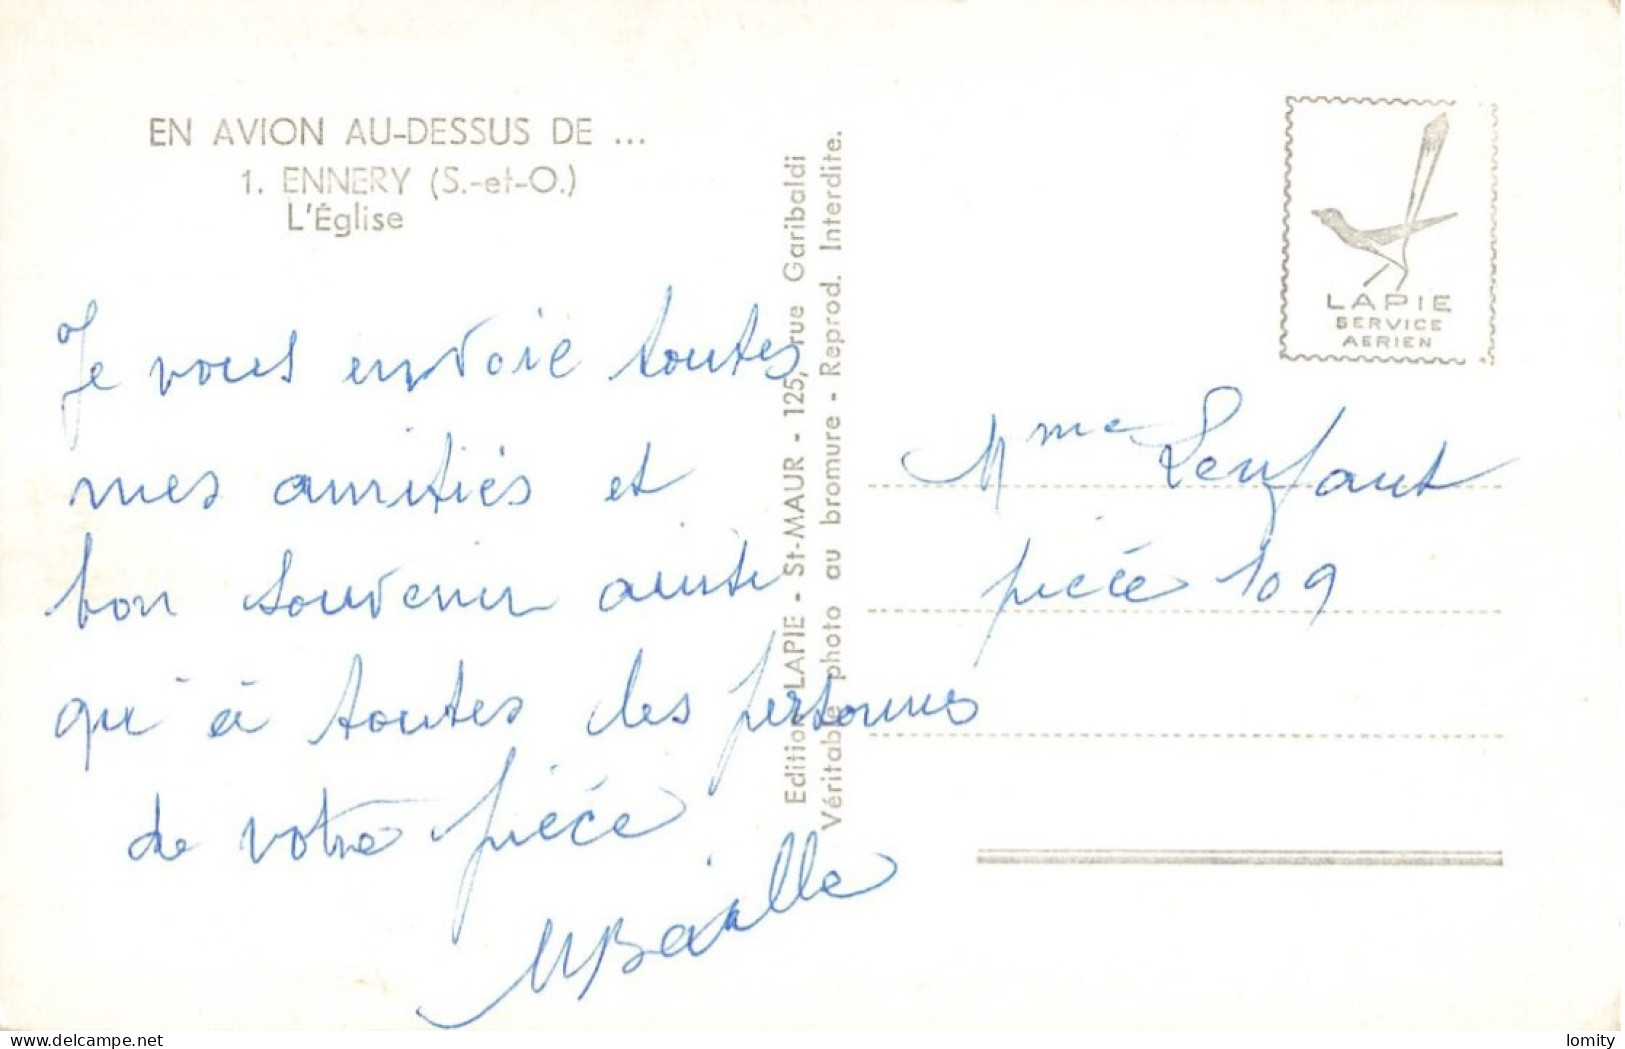 EN AVION AU-DESSUS DE ...
1. ENNERY (S.-et-O.)
L'Église
Je vous envoie toutes
mes amitiés et
bon souvenir ainsi
qu'à toutes les personnes
de votre pièce
MBaille
Edition LAPIE - St-MAUR - 125, rue Garibaldi
Véritable photo au bromure - Reprod. Interdite.
LAPIE
SERVICE
AERIEN
Mme Lenfant
pièce 109
delcampe.net
lomity